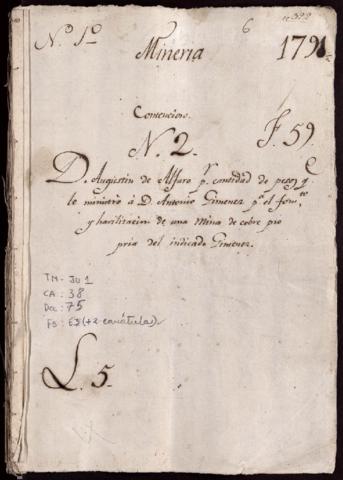 6
Nº 1º
Mineria
1791
Contencioso.
N. 2.
F. 59
D. Augustin de Alfaro pr. cantidad de pesos qe
le ministró à D. Antonio Gimenez pa. el fomto.
y havilitacion de una Mina de cobre pro
pria del indicado Gimenez.
TM-JU 1
CA: 38
Doc: 75
Fs: 62 (+2 carátulas)
L. 5.